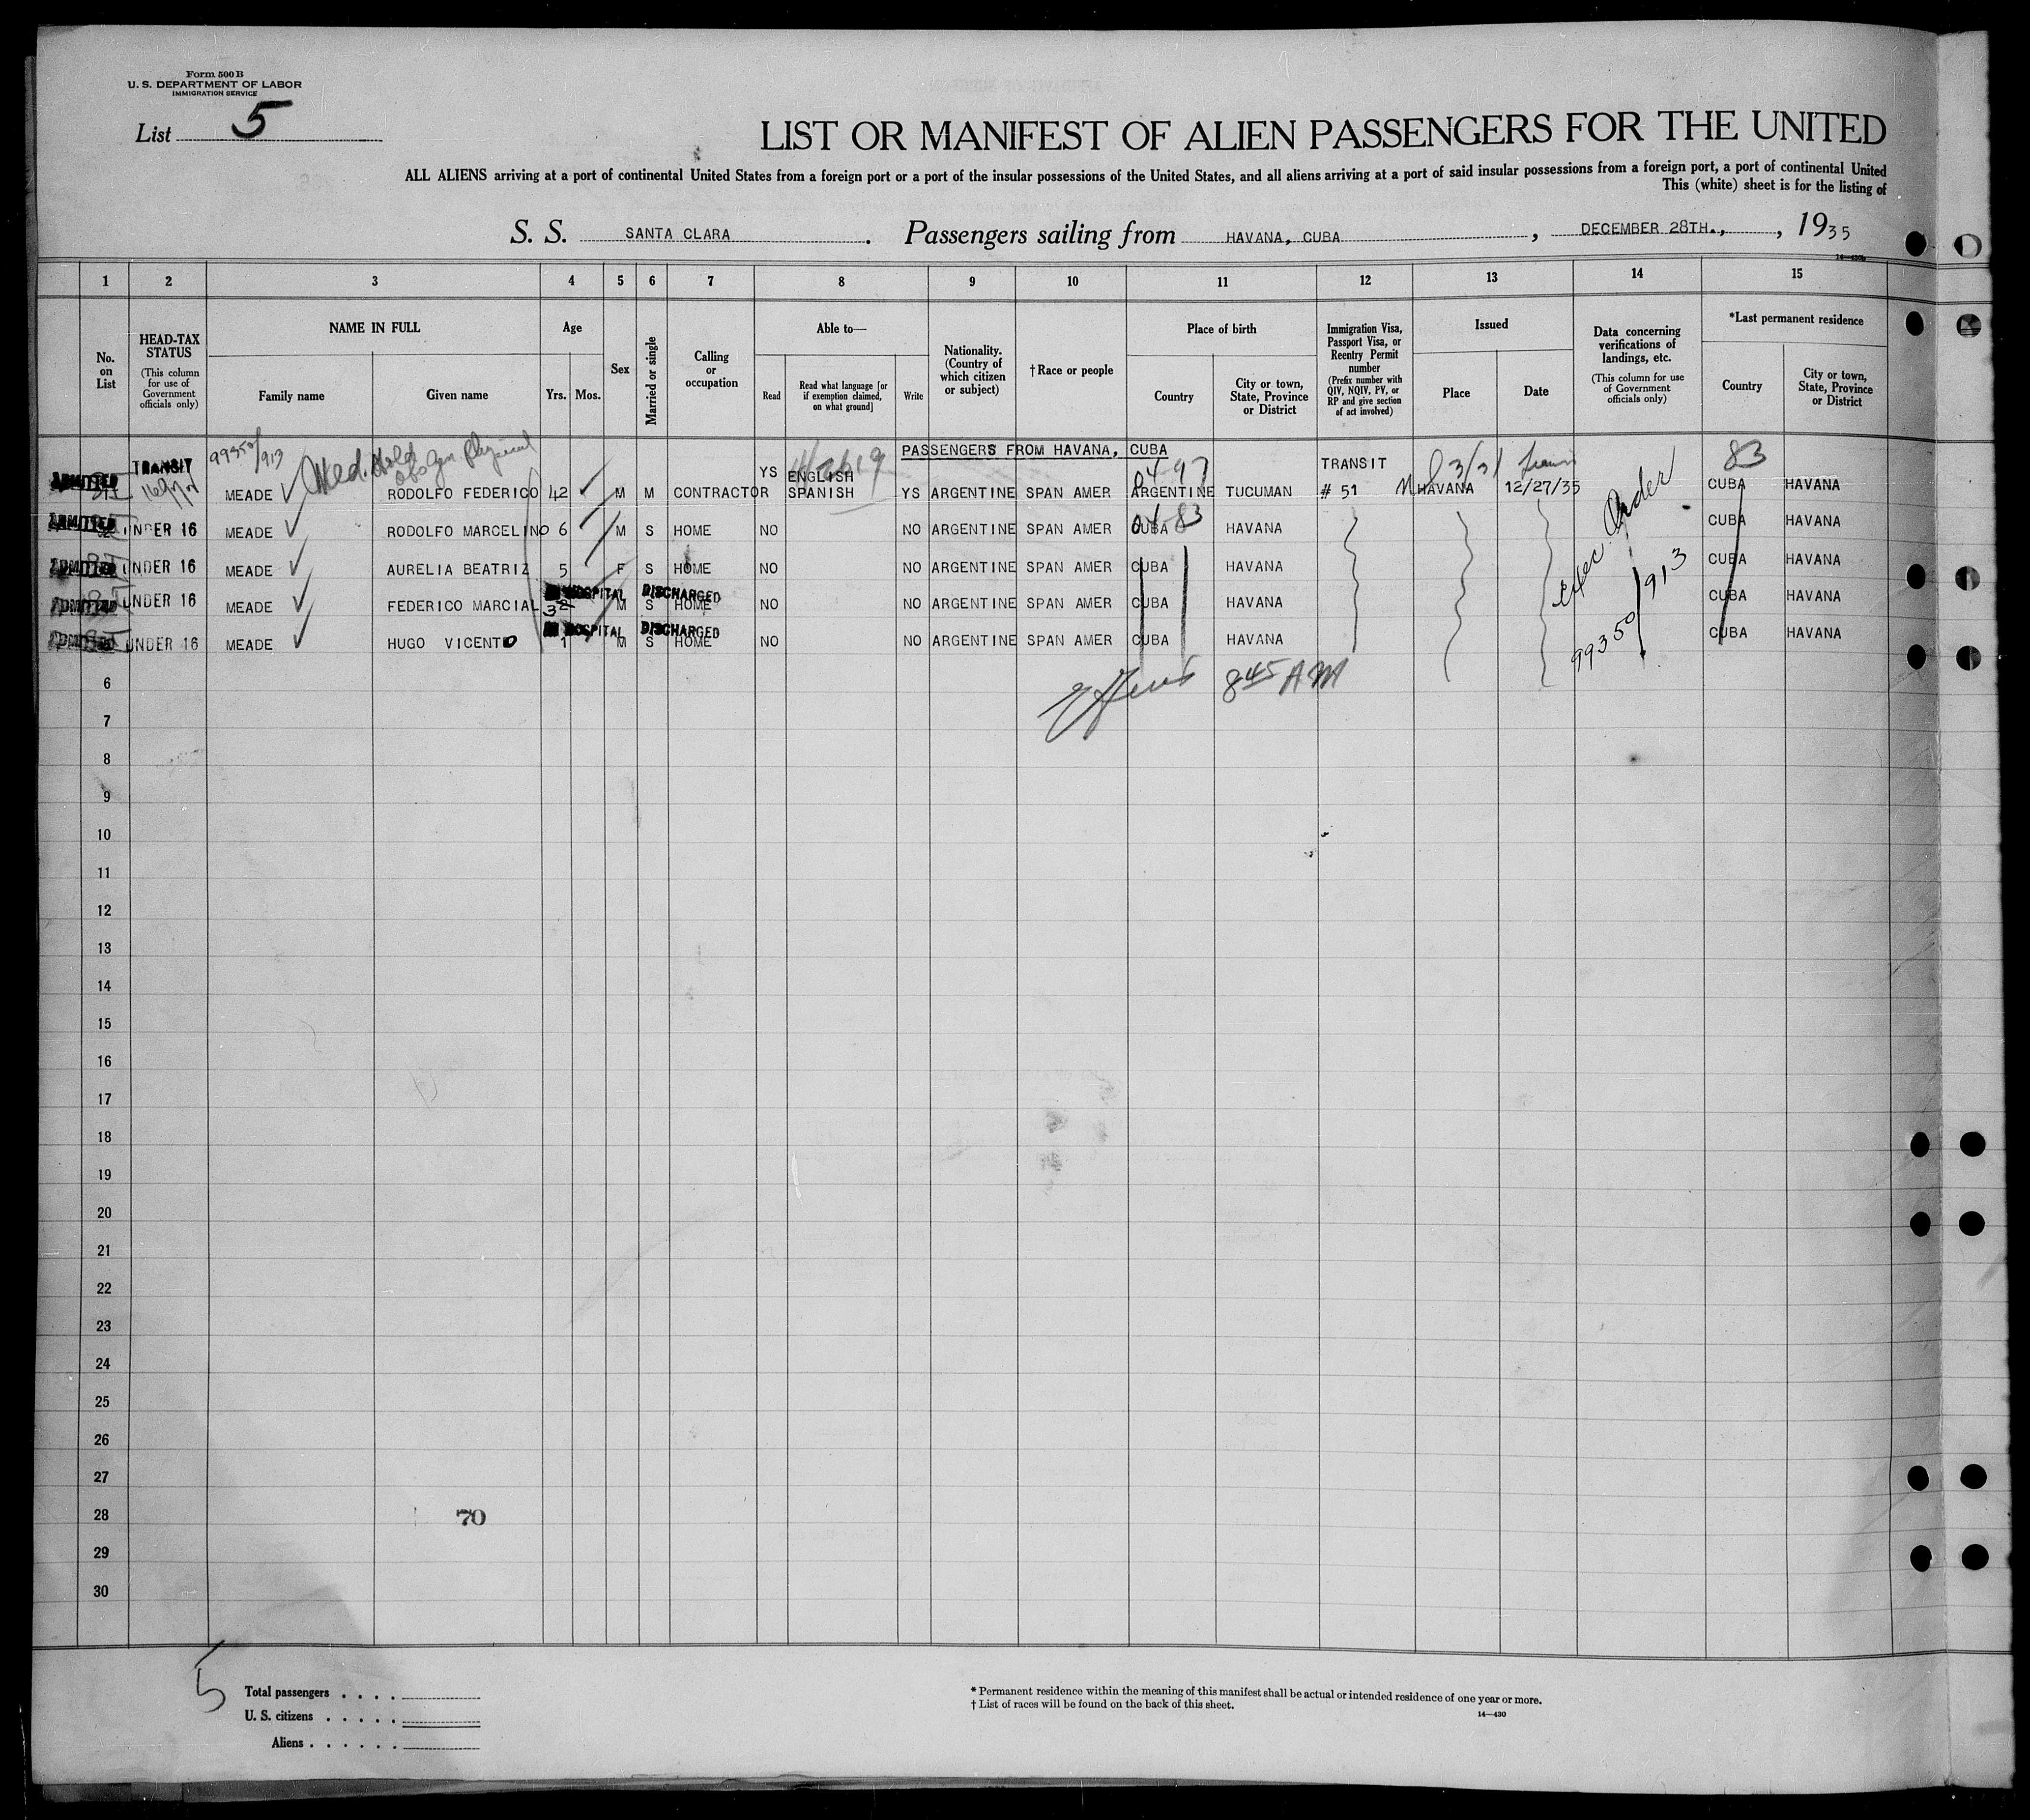 Form 500 B
U. S. DEPARTMENT OF LABOR
IMMIGRATION SERVICE
List 5
LIST OR MANIFEST OF ALIEN PASSENGERS FOR THE UNITED
ALL ALIENS arriving at a port of continental United States from a foreign port or a port of the insular possessions of the United States, and all aliens arriving at a port of said insular possessions from a foreign port, a port of continental United
This (white) sheet is for the listing of
S. S. SANTA CLARA. Passengers sailing from HAVANA, CUBA, DECEMBER 28TH., , 1935
14—430b
1 2 3 4 5 6 7 8 9 10 11 12 13 14 15
No. on List
HEAD-TAX STATUS (This column for use of Government officials only)
NAME IN FULL Family name Given name
Age Yrs. Mos.
Sex
Married or single
Calling or occupation
Able to— Read Read what language [or if exemption claimed, on what ground] Write
Nationality. (Country of which citizen or subject)
† Race or people
Place of birth Country City or town, State, Province or District
Immigration Visa, Passport Visa, or Reentry Permit number (Prefix number with QIV, NQIV, PV, or RP and give section of act involved)
Issued Place Date
Data concerning verifications of landings, etc. (This column for use of Government officials only)
*Last permanent residence Country City or town, State, Province or District
99350/913 Med. Hold Obs Gen Physical
PASSENGERS FROM HAVANA, CUBA
ADMITTED TRANSIT MEADE RODOLFO FEDERICO 42 M M CONTRACTOR YS ENGLISH SPANISH YS ARGENTINE SPAN AMER 04-97 ARGENTINE TUCUMAN TRANSIT # 51 HAVANA 12/27/35 83 CUBA HAVANA
ADMITTED UNDER 16 MEADE RODOLFO MARCELINO 6 M S HOME NO NO ARGENTINE SPAN AMER 04-83 CUBA HAVANA CUBA HAVANA
ADMITTED UNDER 16 MEADE AURELIA BEATRIZ 5 F S HOME NO NO ARGENTINE SPAN AMER CUBA HAVANA CUBA HAVANA
IN HOSPITAL DISCHARGED
ADMITTED UNDER 16 MEADE FEDERICO MARCIAL 3 M S HOME NO NO ARGENTINE SPAN AMER CUBA HAVANA CUBA HAVANA
IN HOSPITAL DISCHARGED
ADMITTED UNDER 16 MEADE HUGO VICENTO 1 M S HOME NO NO ARGENTINE SPAN AMER CUBA HAVANA CUBA HAVANA
Exec. Order
99350/913
8 45 AM
6
7
8
9
10
11
12
13
14
15
16
17
18
19
20
21
22
23
24
25
26
27
28 70
29
30
5
Total passengers . . . .
U. S. citizens . . . . .
Aliens . . . . . .
* Permanent residence within the meaning of this manifest shall be actual or intended residence of one year or more.
† List of races will be found on the back of this sheet.
14—430